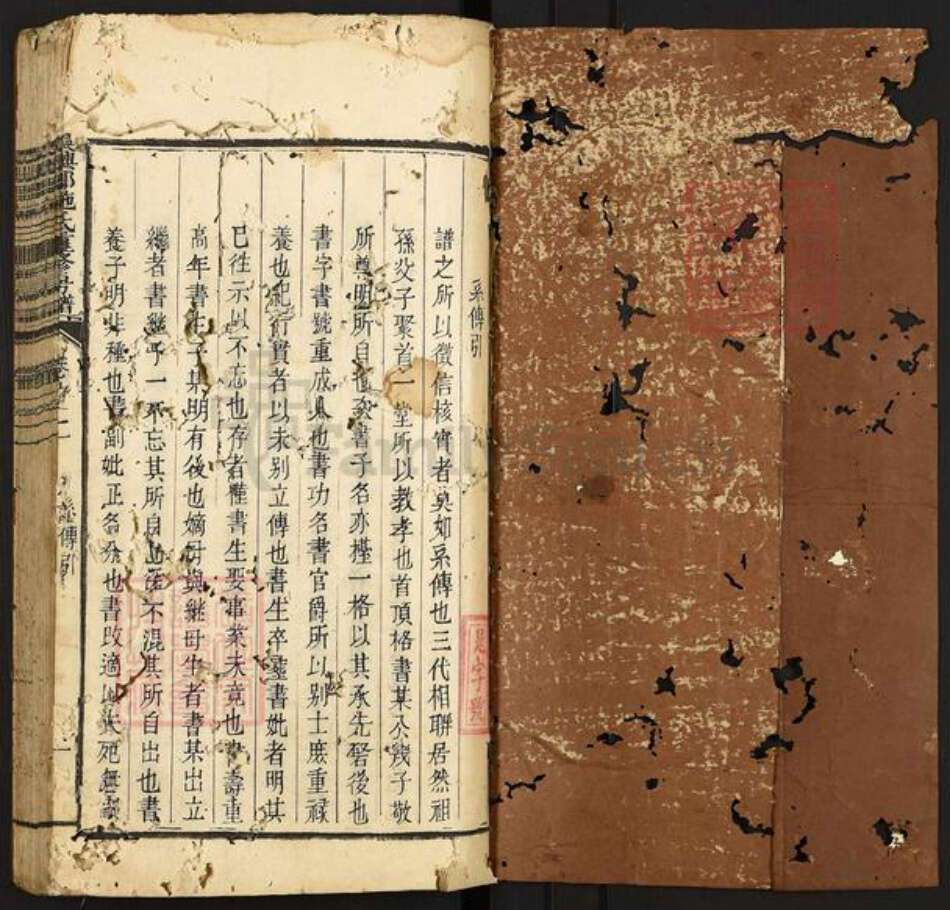 系傳引
譜之所以徵信核實者莫如系傳也三代相聯居然祖
孫父子聚首一堂所以教孝也首頂格書某公幾子敬
所尊明所自也次書子名亦擡一格以其承先啓後也
書字書號重成人也書功名書官爵所以别士庶重祿
養也紀行實者以未别立傳也書生卒塟書妣者明其
已往示以不忘也存者僅書生娶事業未竟也書壽重
高年書生子某明有後也嫡母與繼母生者書某出立
繼者書繼子一不忘其所自也 不混其所自出也書
養子明非種也書副妣正名分也書改適 夫死無
興郡施氏 修 譜
系傳引
一
是字號